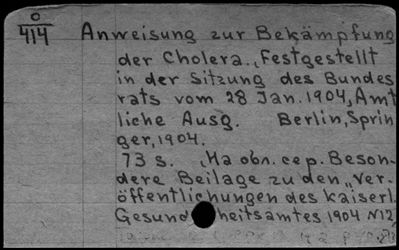 O
414
Anweisung zur Bekämpfung
der Cholera., Festgestellt
in der Sitzung des Bundes
rats vom 28 Jan. 1904, Amt
liche Ausg. Berlin, Sprin
ger, 1904.
73 s. , На обл. сер. Beson-
dere Beilage zu den „Ver-
öffentlichungen des kaiserl.
Gesundheitsamtes 1904 N12